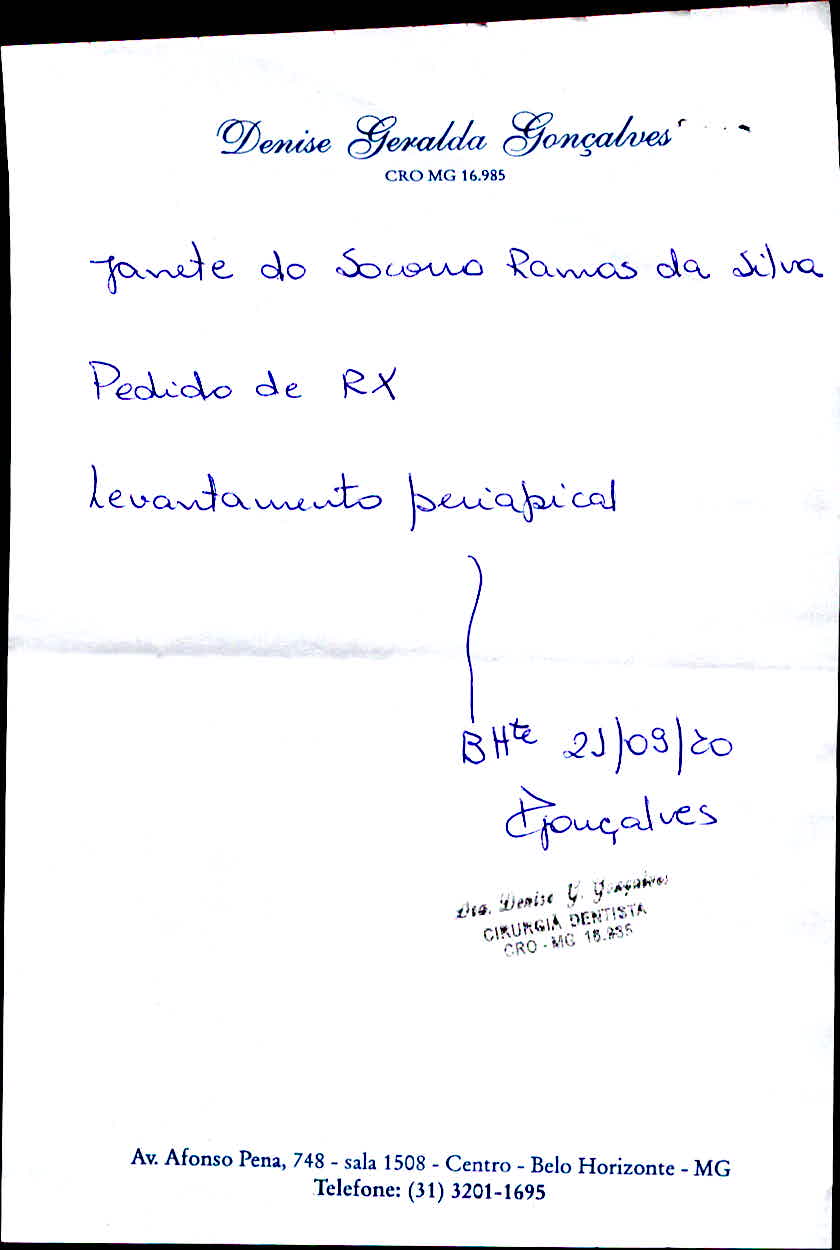 Denise Geralda Gonçalves
CRO MG 16.985
Janete do Socorro Ramos da Silva
Pedido de RX
Levantamento periapical
BHte 21/09/20
DGonçalves
Dra. Denise G. Gonçalves
CIRURGIÃ DENTISTA
CRO - MG 16.985
Av. Afonso Pena, 748 - sala 1508 - Centro - Belo Horizonte - MG
Telefone: (31) 3201-1695